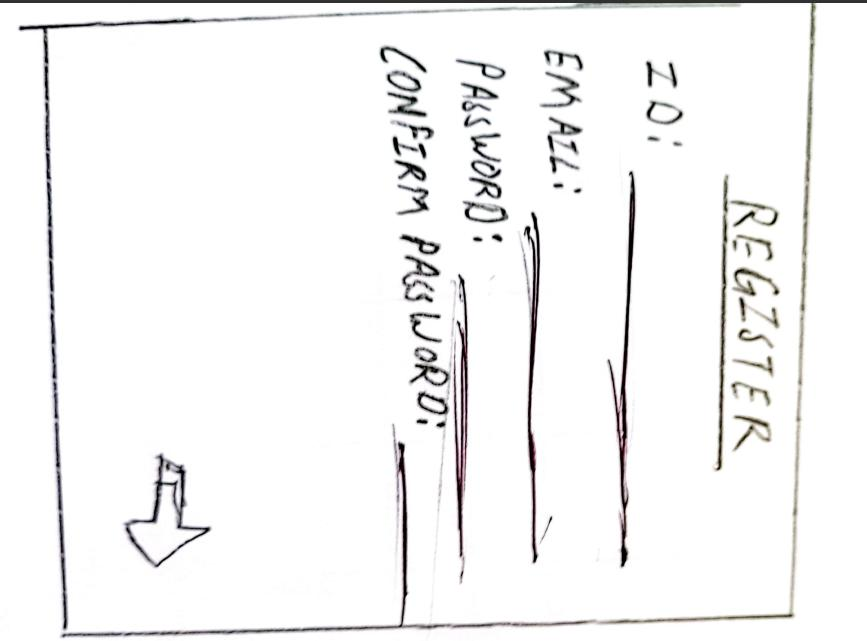 REGISTER
ID:
EMAIL:
PASSWORD:
CONFIRM PASSWORD: